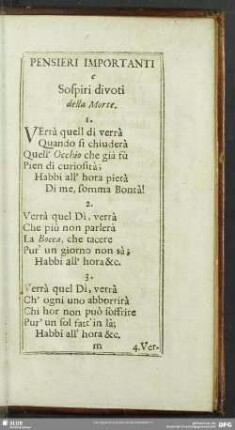 PENSIERI IMPORTANTI
e
Sospiri divoti
della Morte.
1.
VErrà quell dì verrà
Quando si chiuderà
Quell' Occhio che già fù
Pien di curiosità;
Habbi all' hora pietà
Di me, somma Bontà!
2.
Verrà quel Dì, verrà
Che più non parlerà
La Bocca, che tacere
Pur' un giorno non sà;
Habbi all' hora &c.
3.
Verrà quel Dì, verrà
Ch' ogni uno abborrirà
Chi hor non può soffrire
Pur' un sol fatt' in là;
Habbi all' hora &c.
m 4. Ver-